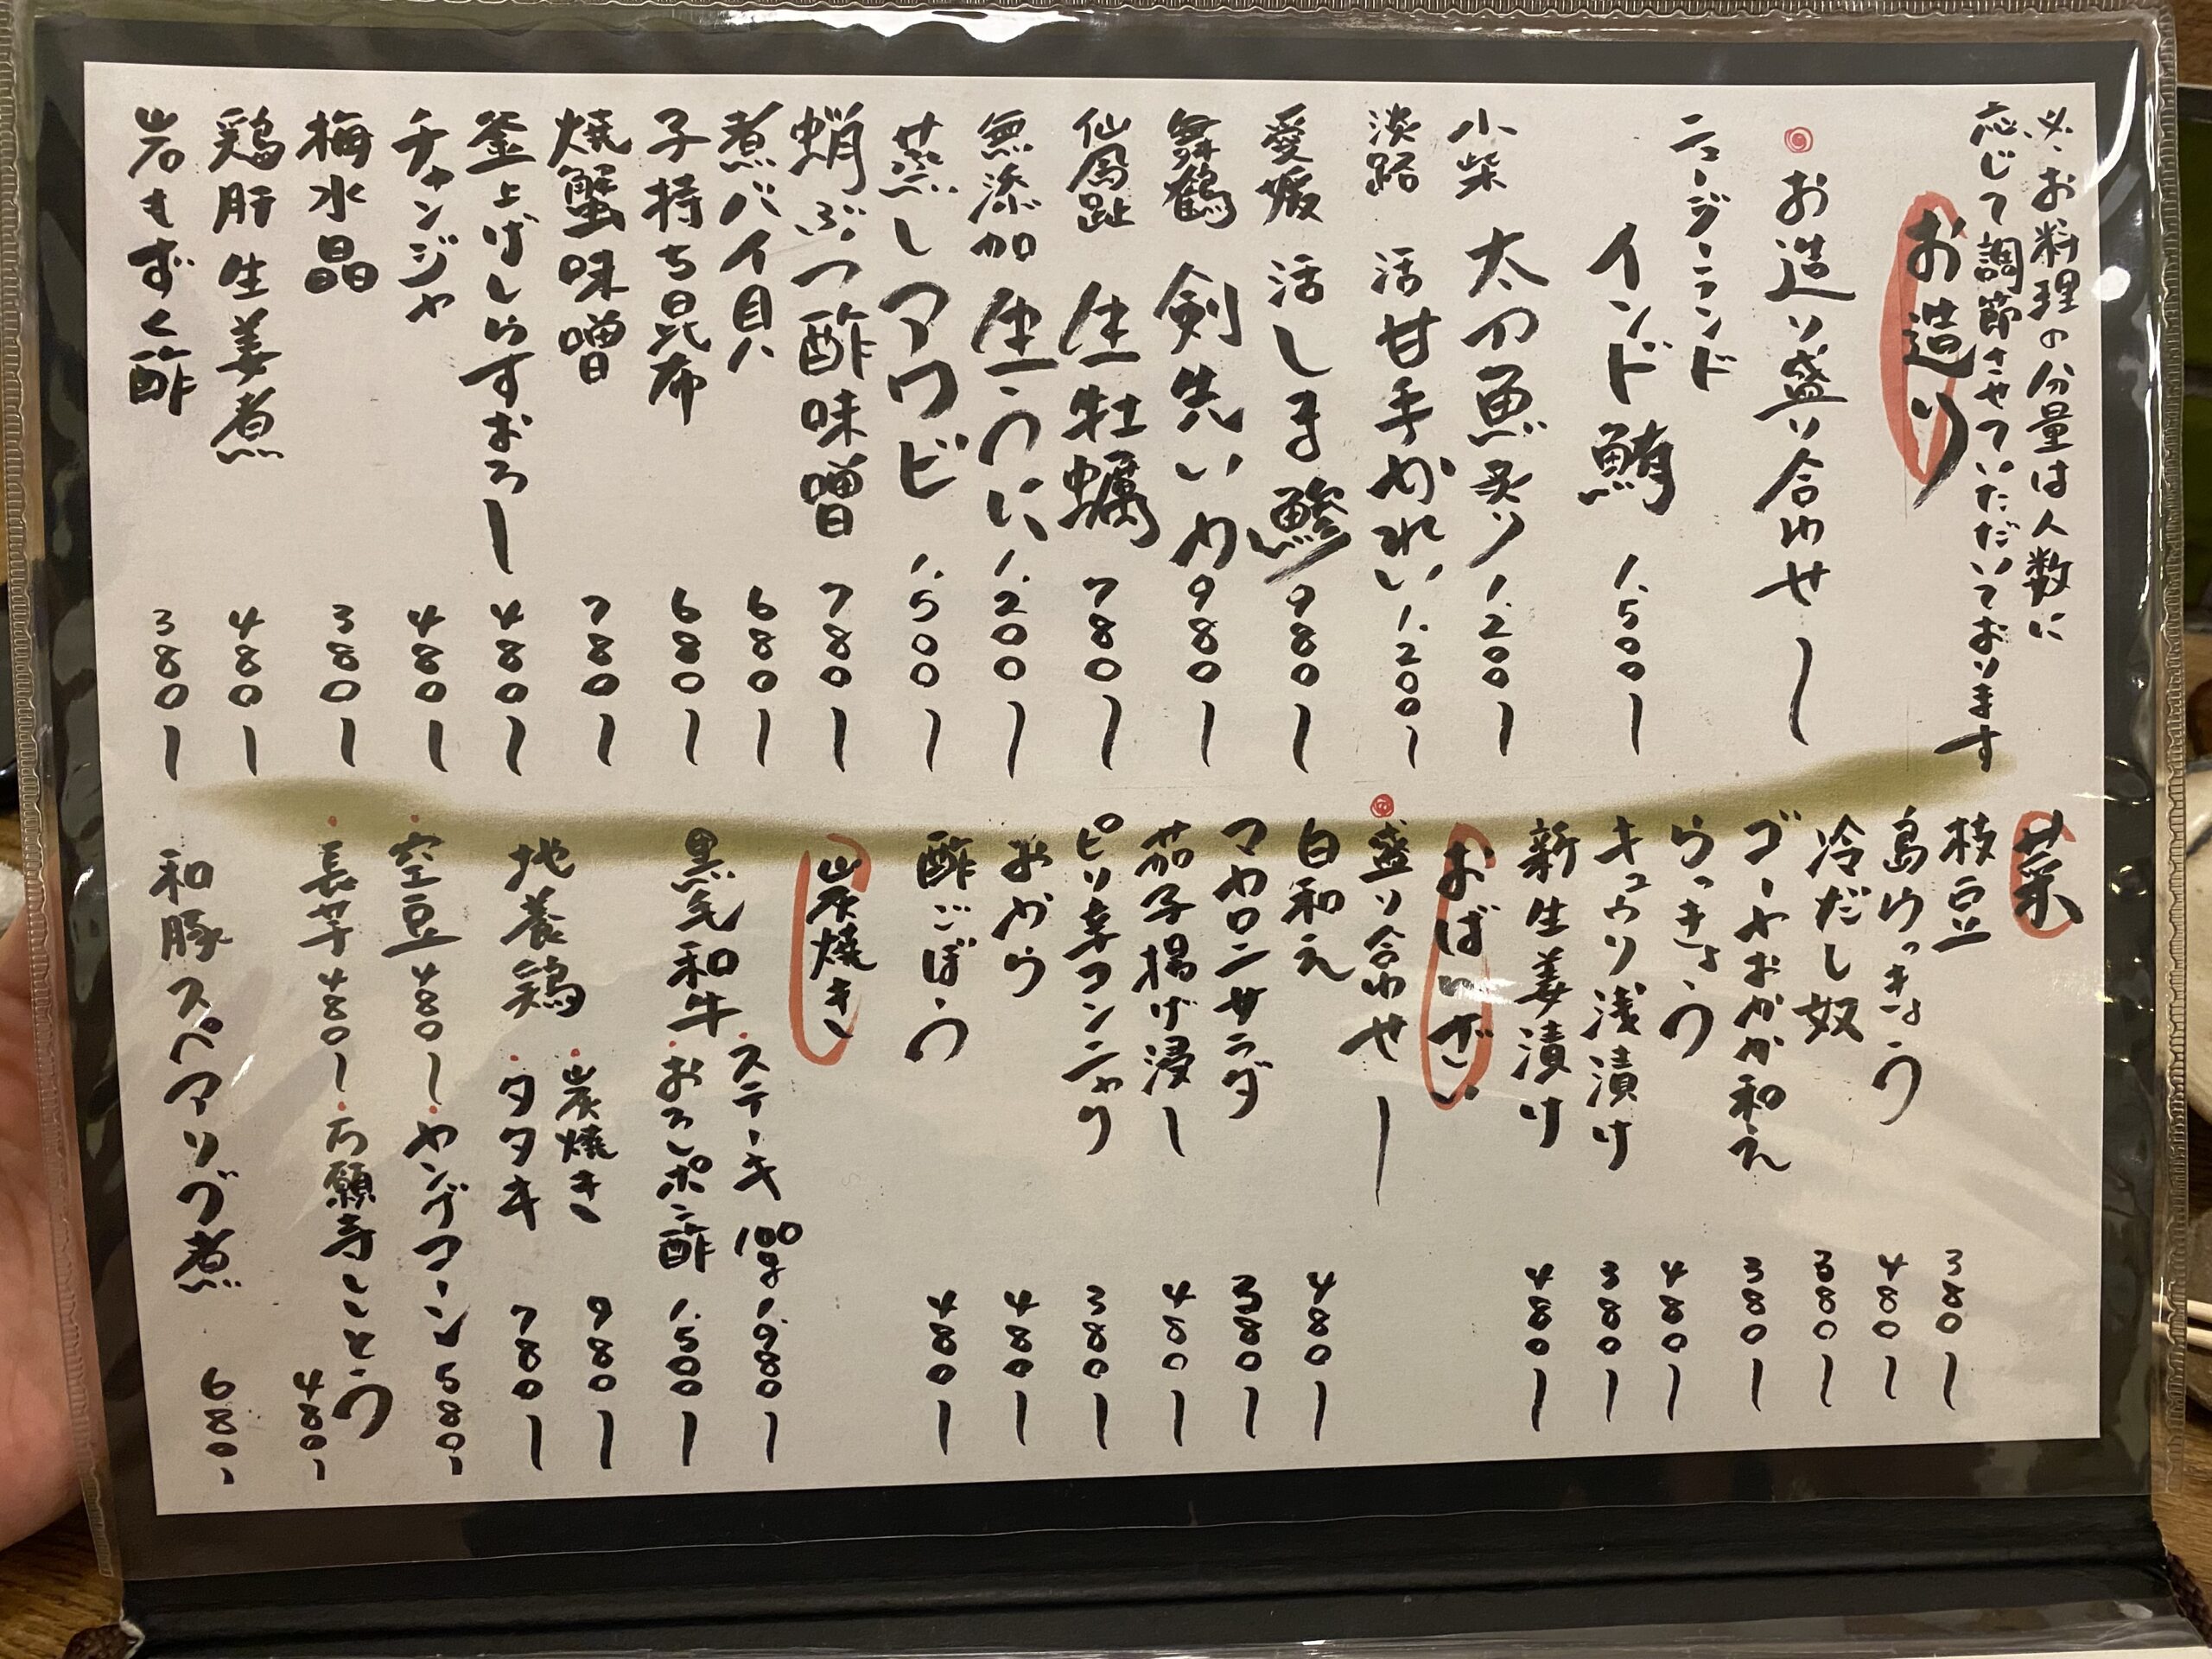 ※お料理の分量は人数に
応じて調節させていただいております
お造り
お造り盛り合わせ ー
ニュージーランド
インド鮪 1.500ー
小柴 太刀魚炙り 1.200ー
淡路 活甘手かれい 1.200ー
愛媛 活しま鯵 980ー
舞鶴 剣先いか 980ー
仙鳳趾 生牡蠣 780ー
無添加 生うに 1.200ー
蒸しアワビ 1.500ー
蛸ぶつ酢味噌 780ー
煮バイ貝 680ー
子持ち昆布 680ー
焼蟹味噌 780ー
釜上げしらすおろし 480ー
チャンジャ 480ー
梅水晶 380ー
鶏肝生姜煮 480ー
岩もずく酢 380ー
菜
枝豆 380ー
島らっきょう 480ー
冷だし奴 380ー
ゴーヤおかか和え 380ー
らっきょう 480ー
キュウリ浅漬け 380ー
新生姜漬け 480ー
おばんざい
盛り合わせ ー
白和え 480ー
マカロニサラダ 380ー
茄子揚げ浸し 480ー
ピリ辛コンニャク 380ー
おから 480ー
酢ごぼう 480ー
炭焼き
黒毛和牛
・ステーキ 100g 1.980ー
・おろしポン酢 1.500ー
地養鶏
・炭焼き 980ー
・タタキ 780ー
・空豆 480ー ・ヤングコーン 580ー
・長芋 480ー ・万願寺とうとう 480ー
和豚スペアリブ煮 680ー